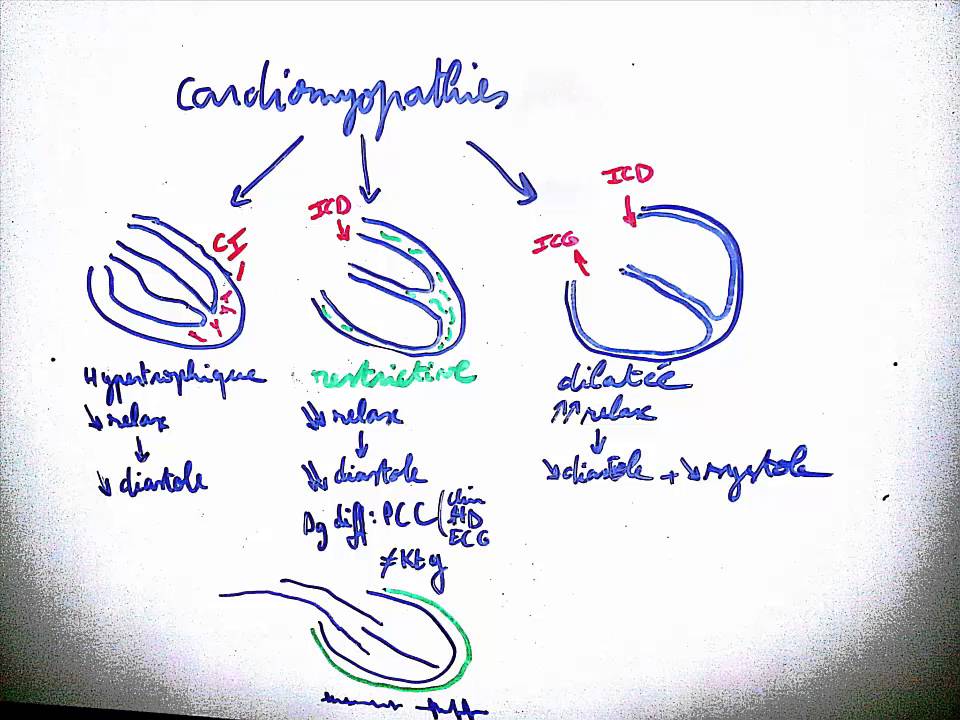 cardiomyopathies
ICD
ICD
CI
ICG
Hypertrophique
restrictive
dilatée
↘ relax
↘↘ relax
↑↑ relax
↓
↓
↓
↘ diastole
↘↘ diastole
↘ diastole + ↘ systole
Dg diff : PCC ( clin
HD
ECG
≠ Ktg